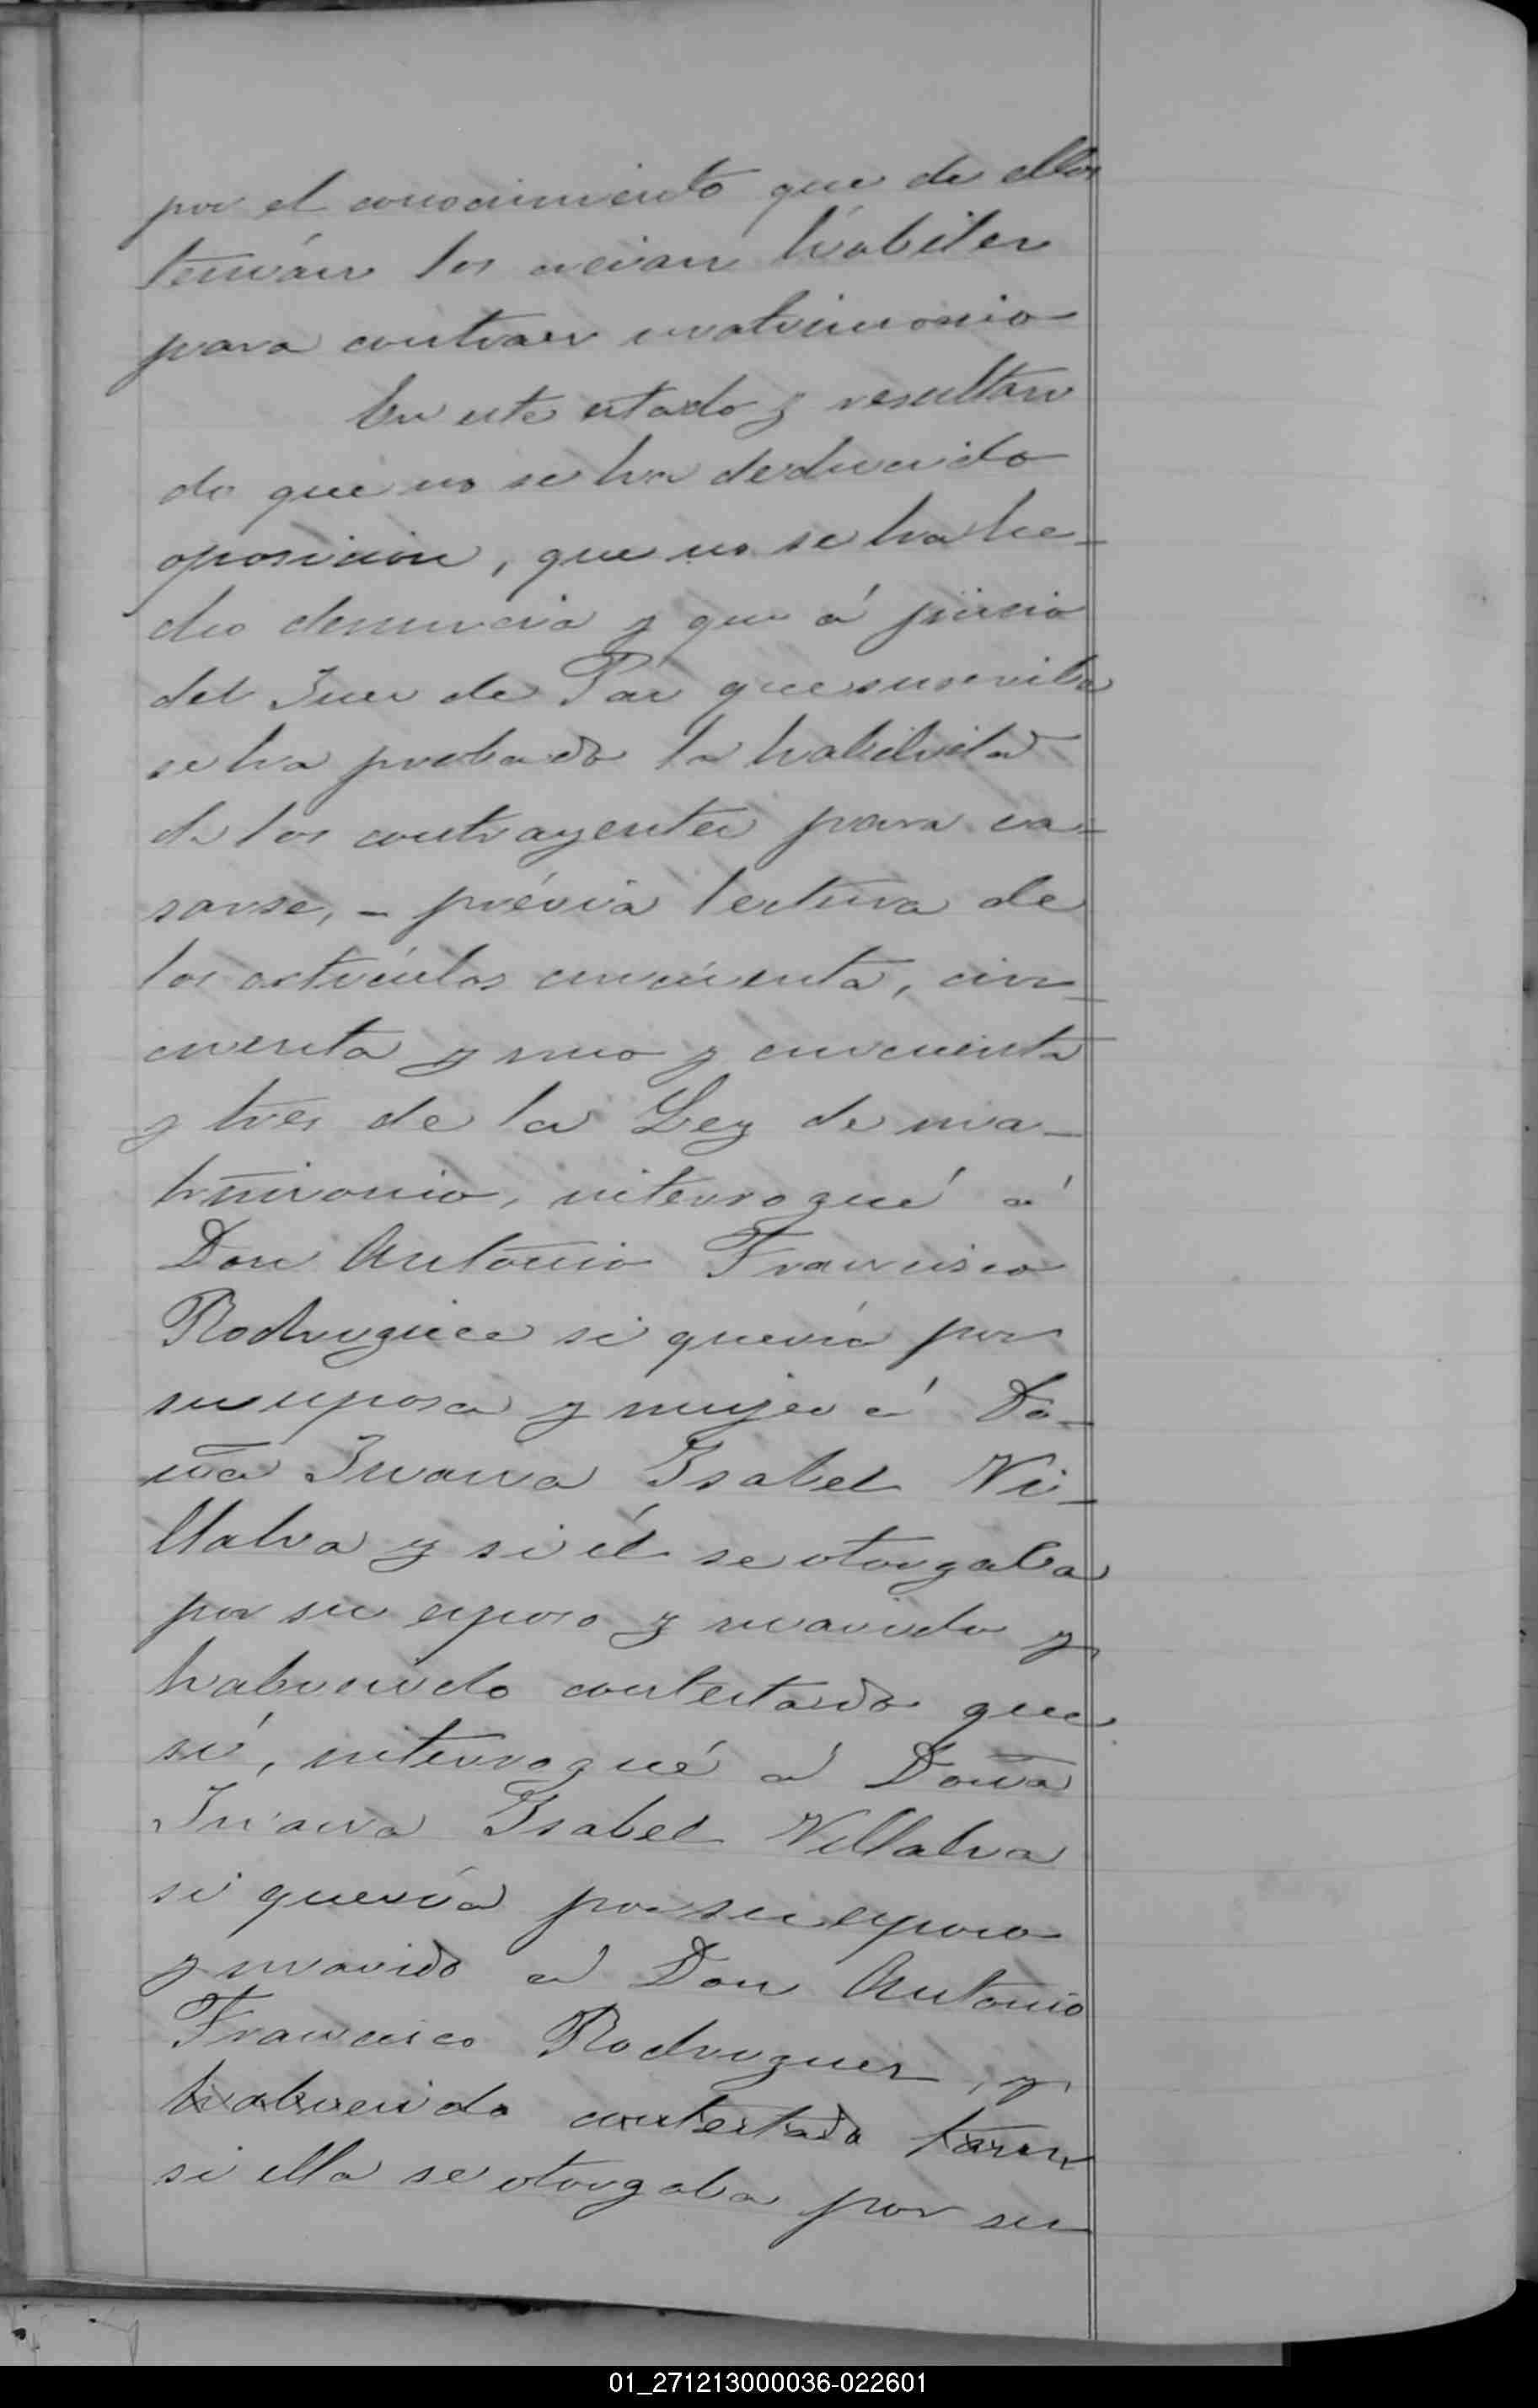 por el conocimiento que de ellos
tenían los creían hábiles
para contraer matrimonio
En este estado y resultan
do que no se ha deducido
oposicion, que no se ha he-
cho denuncia y que á juicio
del Juez de Paz que suscribe
se ha probado la habilidad
de los contrayentes para ca-
sarse, - prévia lectura de
los artículos cincuenta, cin-
cuenta y uno y cincuenta
y tres de la Ley de ma-
trimonio, interrogué á
Don Antonio Francisco
Rodriguez si quería por
su esposa y mujer á Do-
ña Juana Isabel Vi-
llalva y si él se otorgaba
por su esposo y marido y
habiendo contestado que
sí, interrogué á Doña
Juana Isabel Villalva
si quería por su esposo
y marido á Don Antonio
Francisco Rodriguez, y
habiendo contestado
si ella se otorgaba por su
01_271213000036-022601